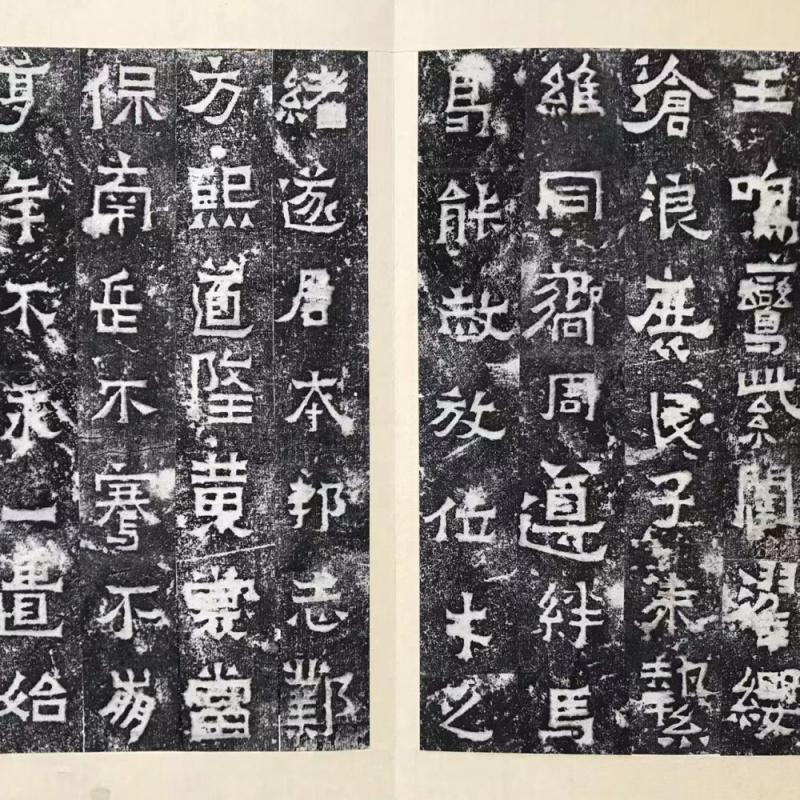 王鳴鸞紫闥濯纓
滄浪庶民子未縶
維同齊周遵絆馬
曷能故放位未之
緒遂居本邦志鄼
方熙道隆黃裳當
保南岳不騫不崩
年不永一始